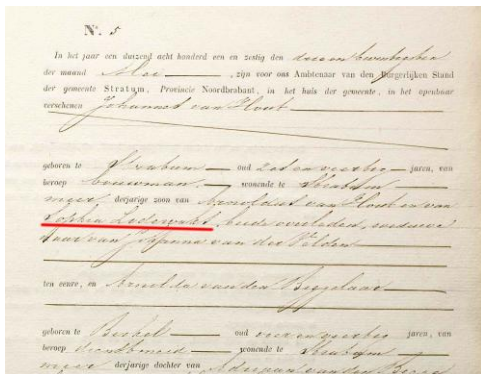 N. 5
In het jaar een duizend acht honderd een en zestig den drie en twintigsten
der maand Mei, zijn voor ons Ambtenaar van den Burgerlijken Stand
der gemeente Stratum, Provincie Noordbrabant, in het huis der gemeente, in het openbaar
verschenen Johannes van Hout
geboren te Stratum oud zes en veertig jaren, van
beroep bouwman, wonende te Stratum
meer derjarige zoon van Arnoldus van Hout en van
Sophia, beide overleden, weduwe
naar van Johanna van der Velden
ten eenre, en Arnolda van den Biggelaar
geboren te Berkel oud en veertig jaren, van
beroep dienstmeid wonende te Stratum
meer derjarige dochter van Adriaan van den